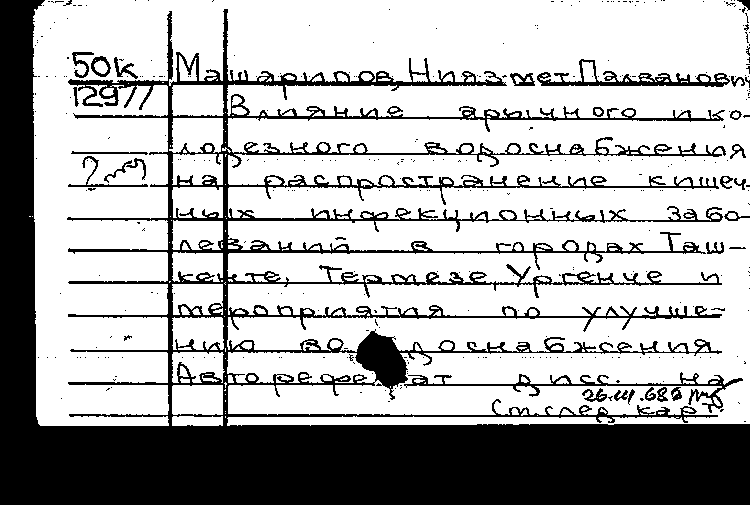 50к Машарипов, Ниязмет Палванович
12977 Влияние арычного и ко-
лодезного водоснабжения
на распространение кишеч-
ных инфекционных забо-
леваний в городах Таш-
кенте, Термезе, Ургенче и
мероприятия по улучше-
нию водоснабжения
Автореферат дисс. на
26.III.68г
См.след.карт.